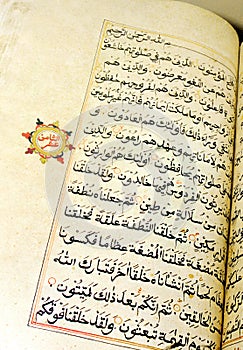 بسم الله الرحمن الرحيم
المؤمنون الذين هم في صلوتهم خاشعون
والذين هم عن اللغو معرضون والذين هم
للزكوة فاعلون والذين هم لفروجهم حافظون الا على
ازواجهم او ما ملكت ايمانهم فانهم غير ملومين فمن
ابتغى وراء ذلك فاولئك هم العادون والذين
هم لاماناتهم وعهدهم راعون والذين
هم على صلواتهم يحافظون اولئك هم الوارثون
الذين يرثون الفردوس هم فيها خالدون ولقد خلقنا
الانسان من سلالة من طين ثم جعلناه نطفة
في قرار مكين ثم خلقنا النطفة علقة فخلقنا
العلقة مضغة فخلقنا المضغة عظاما فكسونا
العظام لحما ثم انشأناه خلقا آخر فتبارك الله
احسن الخالقين ثم انكم بعد ذلك لميتون
ثم انكم يوم القيمة تبعثون ولقد خلقنا فوقكم